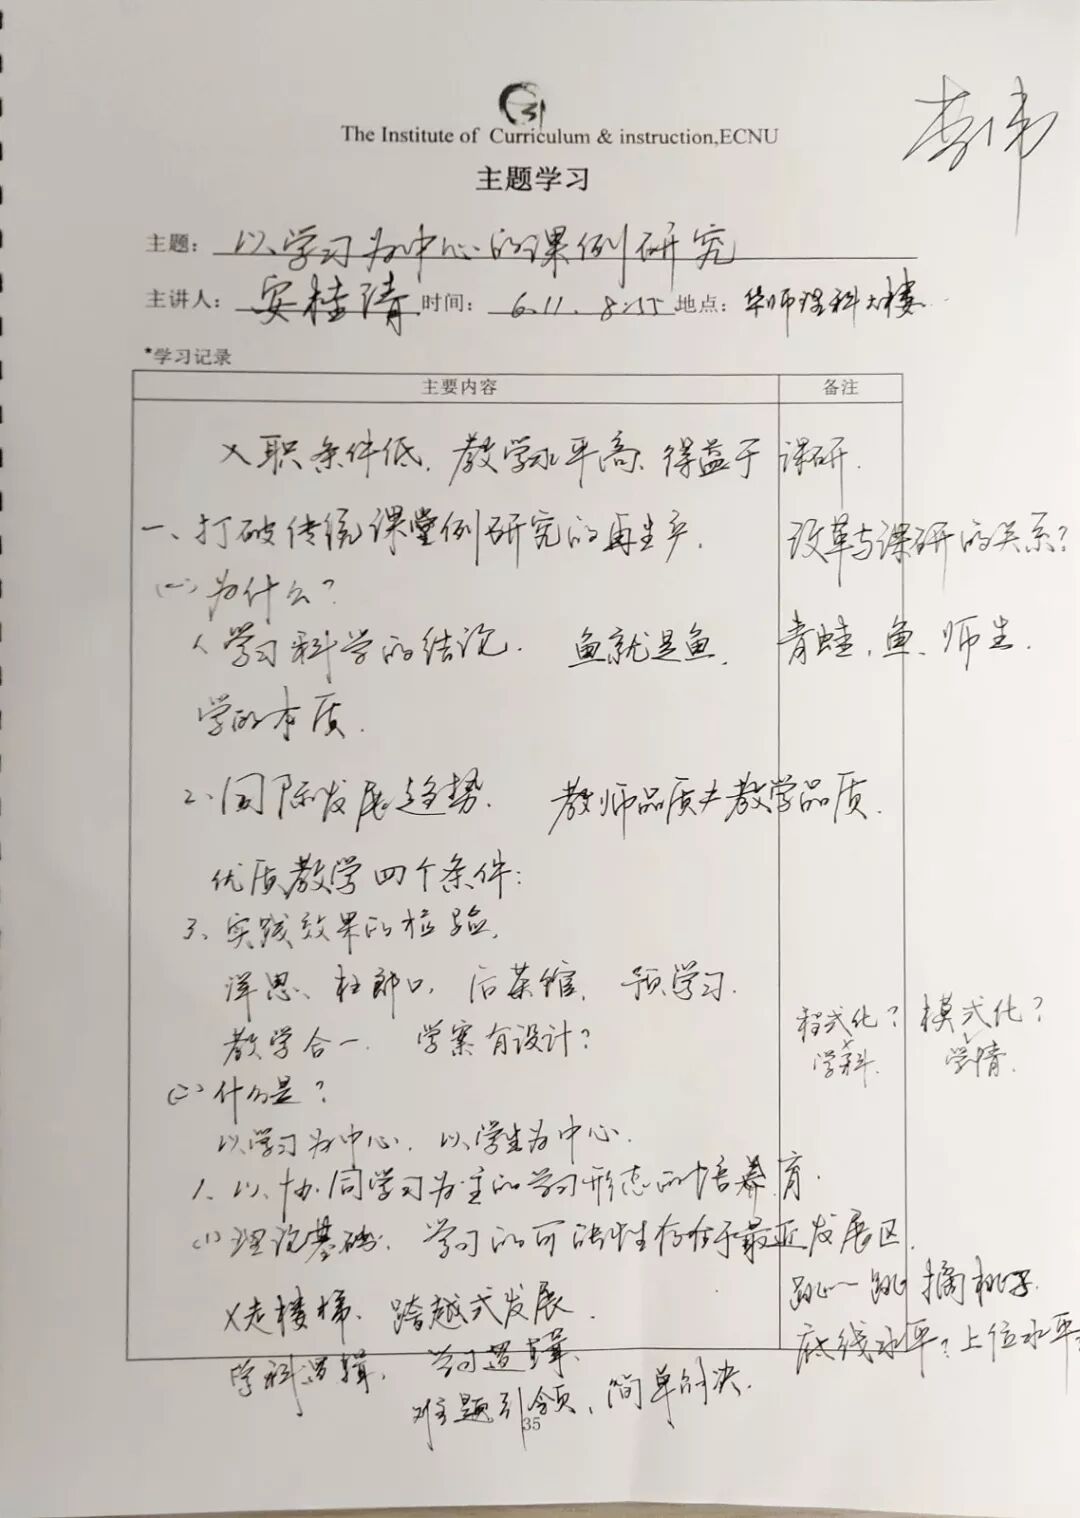 The Institute of Curriculum & instruction,ECNU
李伟
主题学习
主题： 以学习为中心的课例研究
主讲人： 安桂清 时间： 6.11. 8:55 地点： 华师理科大楼.
*学习记录
主要内容 备注
入职条件低、教学水平高、得益于课研.
一、打破传统课堂例研究的再生产. 改革与课研的关系?
(一)为什么?
1、学习科学的结论. 鱼就是鱼. 青蛙、鱼、师生.
学的本质.
2、国际发展趋势. 教师品质≠教学品质.
优质教学四个条件:
3、实践效果的检验.
洋思、杜郎口、后茶馆、预学习.
教学合一. 学案有设计? 程式化? 模式化?
学科. 学情.
(二)什么是?
以学习为中心. 以学生为中心.
1、以协同学习为主的学习形态的培养育.
(1)理论基础. 学习的可能性存在于最近发展区.
跳一跳 摘桃子.
X走楼梯、跨越式发展. 底线水平? 上位水平?
学科逻辑. 学习逻辑.
难题引领,简单解决.
35